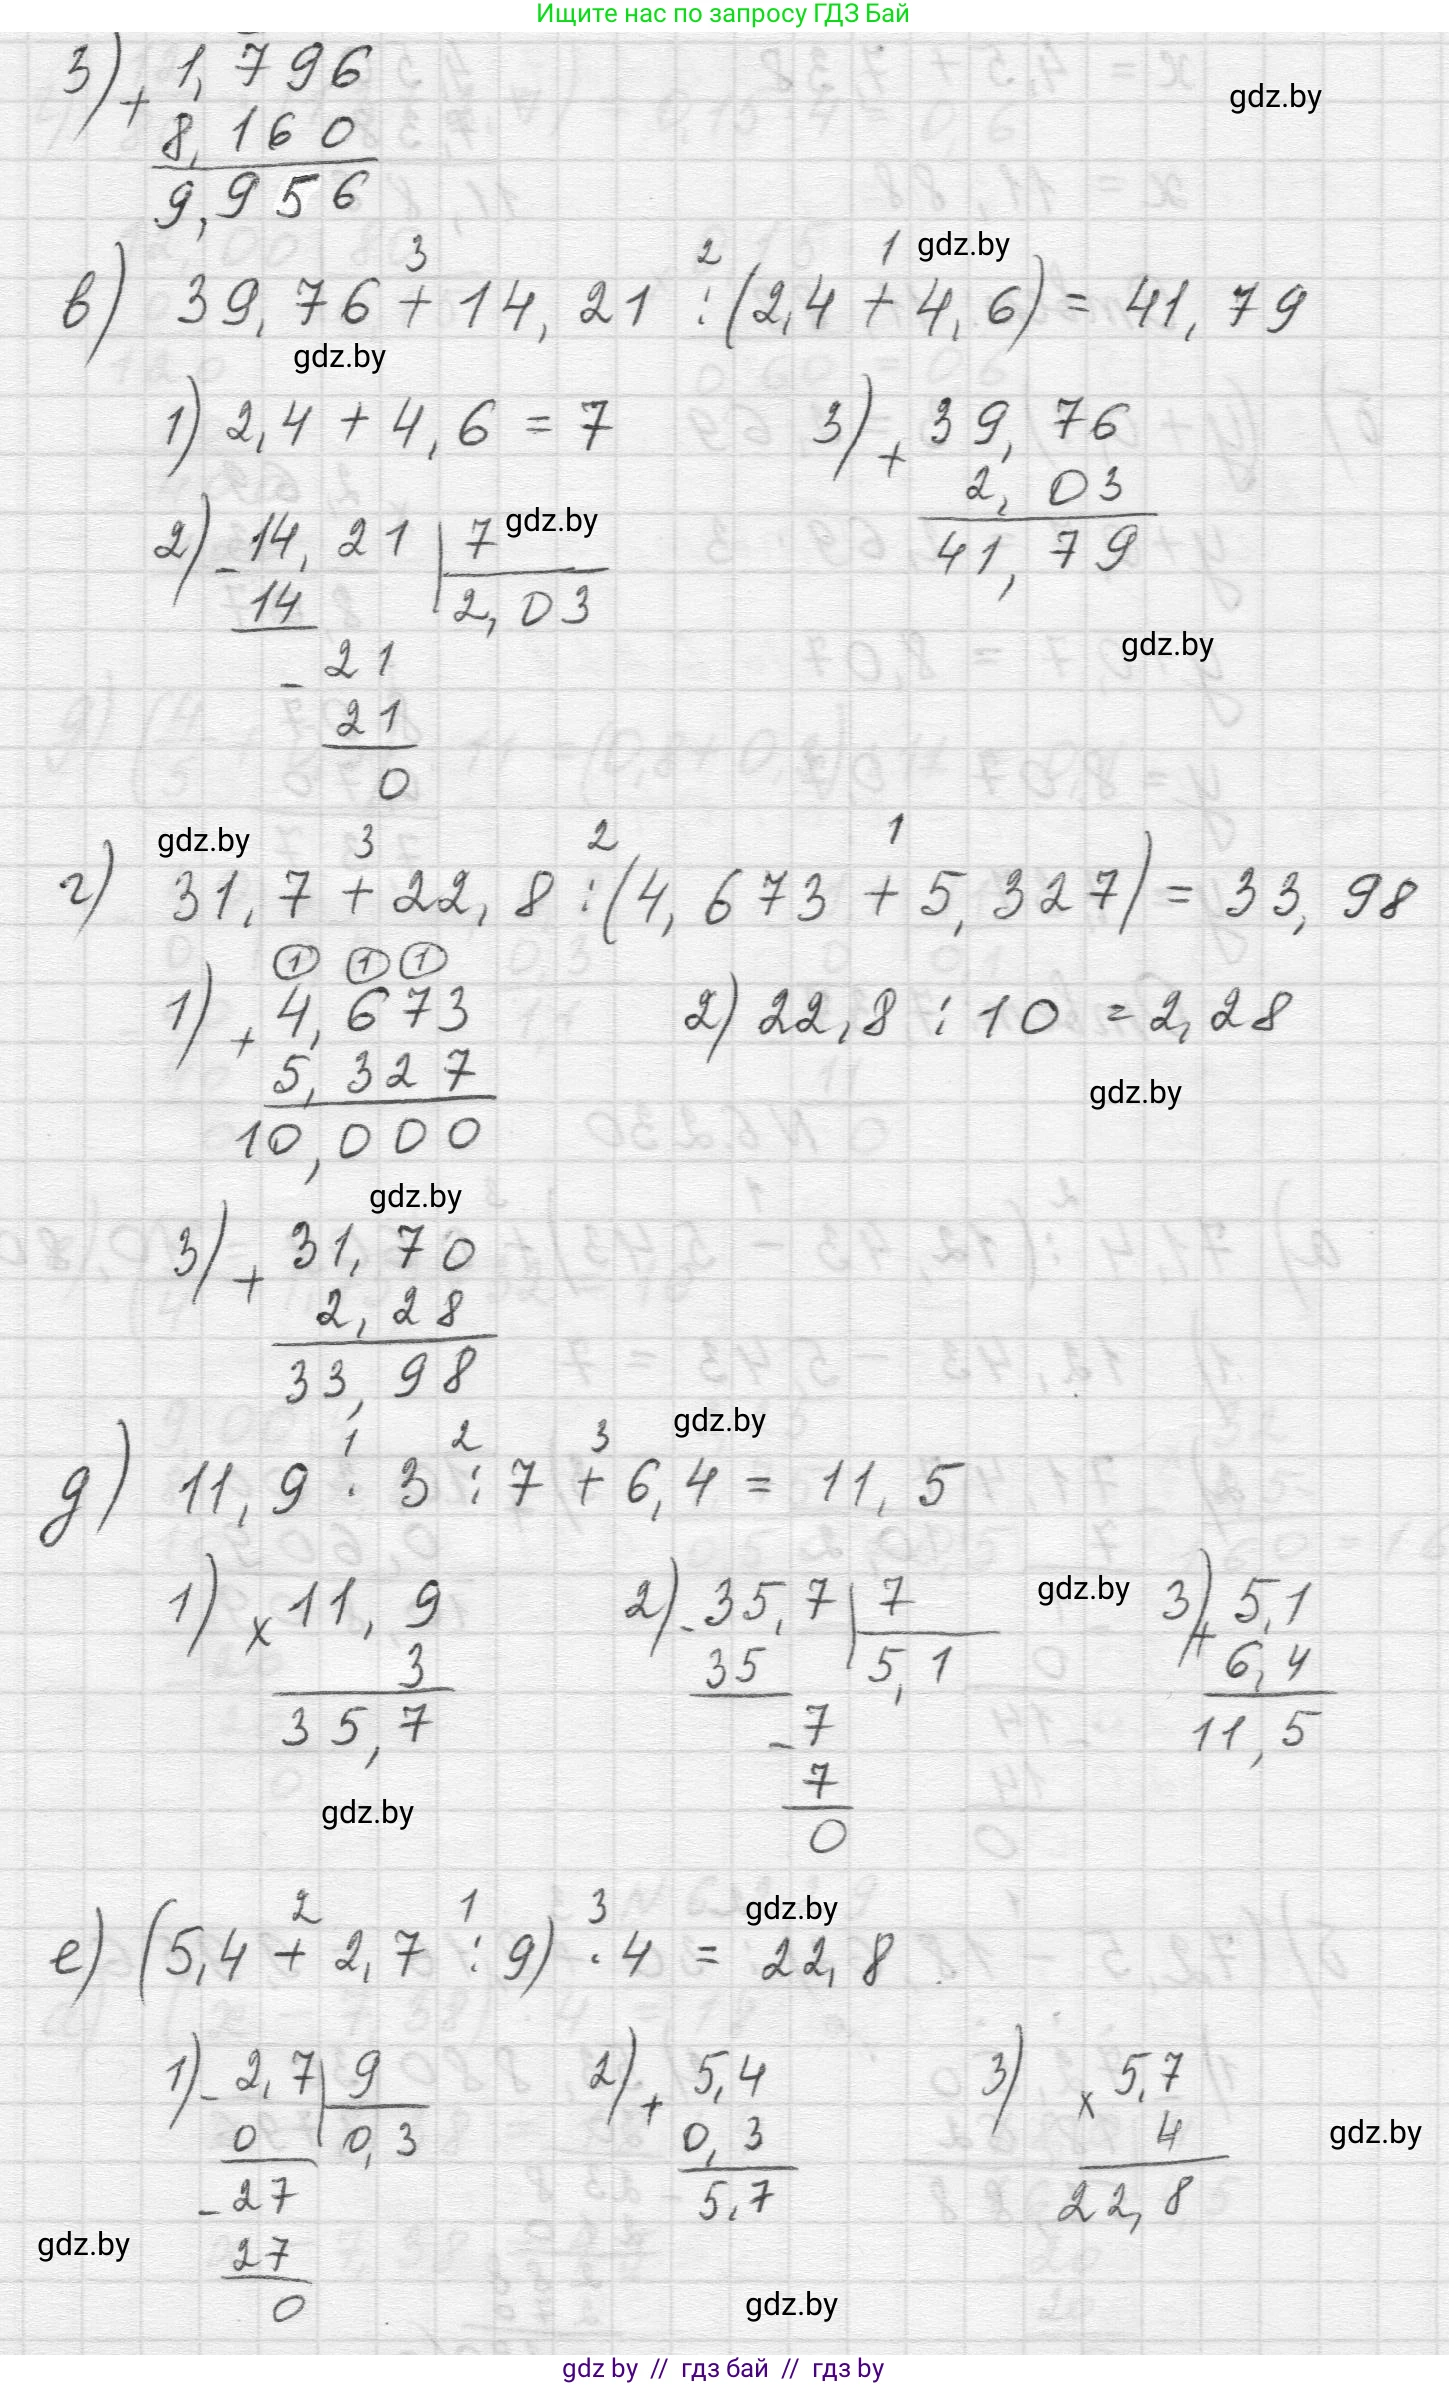 Ищите нас по запросу ГДЗ Бай
3) + 1,796
gdz.by
8,160
9,956
3 2 1 gdz.by
в) 39,76 + 14,21 : (2,4 + 4,6) = 41,79
gdz.by
1) 2,4 + 4,6 = 7
3) + 39,76
2,03
41,79
2) - 14,21 | 7 gdz.by
14 2,03
gdz.by
- 21
21
0
gdz.by 3 2 1
г) 31,7 + 22,8 : (4,673 + 5,327) = 33,98
1 1 1
1) + 4,673
5,327
10,000
2) 22,8 : 10 = 2,28
gdz.by
gdz.by
3) + 31,70
2,28
33,98
1 2 3 gdz.by
д) 11,9 · 3 : 7 + 6,4 = 11,5
1) x 11,9
3
35,7
2) - 35,7 | 7
35 5,1
- 7
7
0
gdz.by
3) + 5,1
6,4
11,5
gdz.by
2 1 3 gdz.by
е) (5,4 + 2,7 : 9) · 4 = 22,8
1) - 2,7 | 9
0 0,3
- 27
27
0
2) + 5,4
0,3
5,7
3) x 5,7
4
22,8
gdz.by
gdz.by
gdz.by
gdz by // гдз бай // гдз by